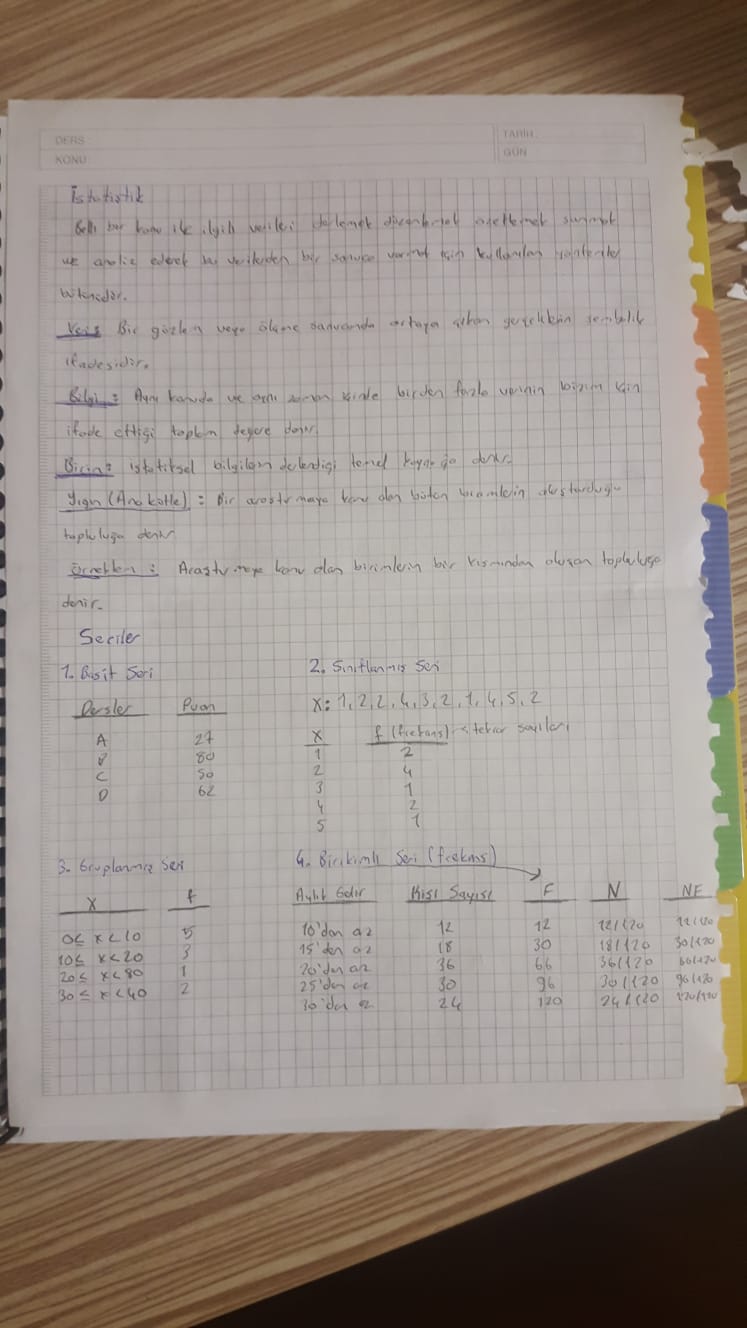 DERS
TARİH
KONU
GÜN
İstatistik
Belli bir konu ile ilgili verileri derlemek düzenlemek özetlemek sunmak
ve analiz ederek bu verilerden bir sonuca varmak için kullanılan yöntemler
bilimidir.
Veri: Bir gözlem veya ölçme sonucunda ortaya çıkan gerçekliğin sembolik
ifadesidir.
Bilgi: Aynı konuda ve aynı zaman içinde birden fazla verinin bizim için
ifade ettiği toplam değere denir.
Birim: istatiksel bilgilerin derlendiği temel kaynağa denir.
Yığın (Ana kütle): Bir araştırmaya konu olan bütün birimlerin oluşturduğu
topluluğa denir
Örneklem: Araştırmaya konu olan birimlerin bir kısmından oluşan topluluğa
denir.
Seriler
1. Basit Seri 2. Sınıflanmış Seri
Dersler Puan X: 1, 2, 2, 4, 3, 2, 1, 4, 5, 2
X f (frekans) tekrar sayıları
A 27 1 2
80 2 4
C 50 3 1
D 62 4 2
5 1
3. Gruplanmış Seri 4. Birikimli Seri (frekans)
X f Aylık Gelir Kişi Sayısı F N NF
0≤ x<10 5 10'dan az 12 12 12/120 12/120
10≤ x<20 3 15'den az 18 30 18/120 30/120
20≤ x<80 1 20'den az 36 66 36/120 66/120
30≤ x<40 2 25'den az 30 96 30/120 96/120
30'dan az 24 120 24/120 120/120